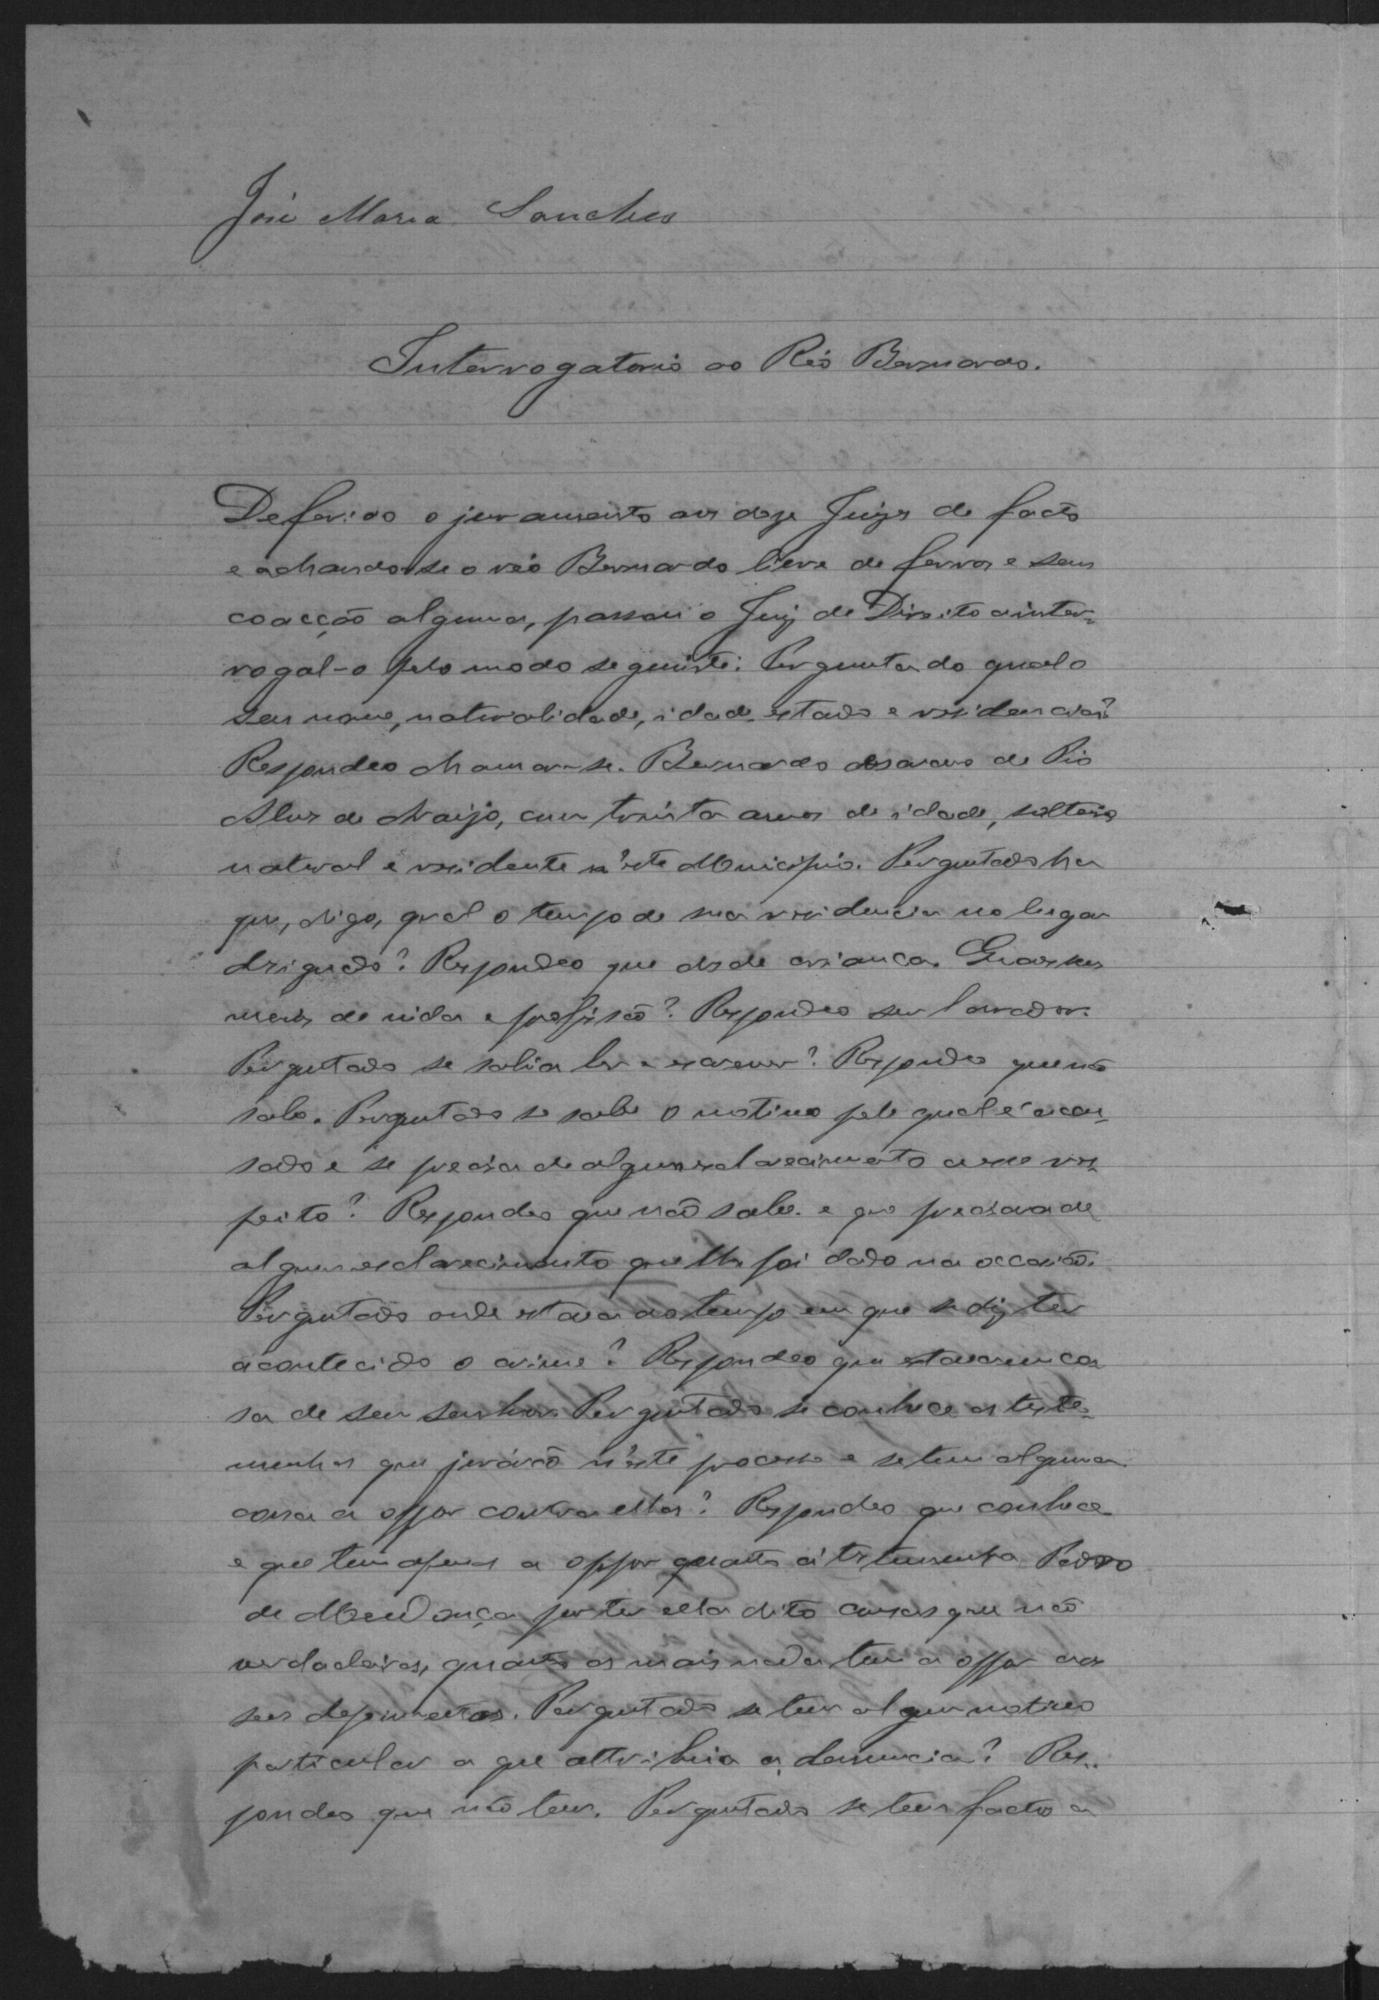 José Maria Sanches
Interrogatorio ao Réo Bernardo.
Deferido o juramento aos doze Juizes de facto
e achando-se o réo Bernardo livre de ferros e sem
coacção alguma, passou o Juiz de Direito a inter-
rogal-o pelo modo seguinte: Perguntado qual o
seu nome, naturalidade, idade, estado e residencia?
Respondeo chamar-se Bernardo escravo de Pio
Alves de Araujo, com trinta annos de idade, solteiro
natural e residente n'este Municipio. Perguntado ha
que, digo, qual o tempo de sua residencia no lugar
designado? Respondeo que desde criança. Quaes seus
meios de vida e profissão? Respondeo ser lavrador.
Perguntado se sabia ler e escrever? Respondeo que não
sabe. Perguntado se sabe o motivo pelo qual é accu-
sado e se precisa de algum esclarecimento a esse res-
peito? Respondeo que não sabe e que precisava de
algum esclarecimento que lhe foi dado na occasião.
Perguntado onde estava ao tempo em que se diz ter
acontecido o crime? Respondeo que estava em ca-
sa de seu senhor. Perguntado se conhece as teste-
munhas que jurárão n'este processo e se tem alguma
cousa a oppor contra ellas? Respondeo que conhece
e que tem apenas a oppor quanto á testemunha Pedro
de Mendonça por ter ella dito cousas que não
verdadeiras, quanto as mais nada tem a oppor aos
seus depoimentos. Perguntado se tem algum motivo
particular a que attribuia a denuncia? Res-
pondeo que não tem. Perguntado se tem factos a